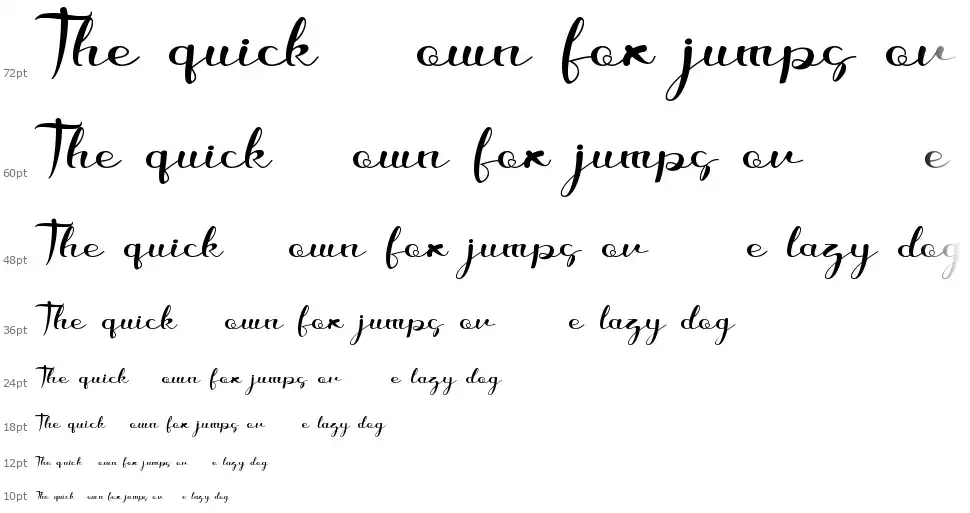 72pt The quick own fox jumps ov
60pt The quick own fox jumps ov e
48pt The quick own fox jumps ov e lazy dog
36pt The quick own fox jumps ov e lazy dog
24pt The quick own fox jumps ov e lazy dog
18pt The quick own fox jumps ov e lazy dog
12pt The quick own fox jumps ov e lazy dog
10pt The quick own fox jumps ov e lazy dog